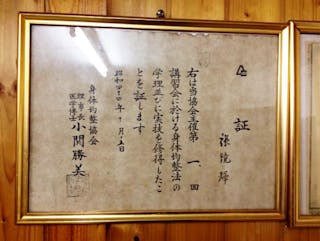 証
張繞輝
右は当協会主催第一、回
講習会に於ける身体均整法の
学理並びに実技を修得したこ
とを証します
昭和四十四年十月十五日
身体均整協会
理事長
医学博士
小関勝美